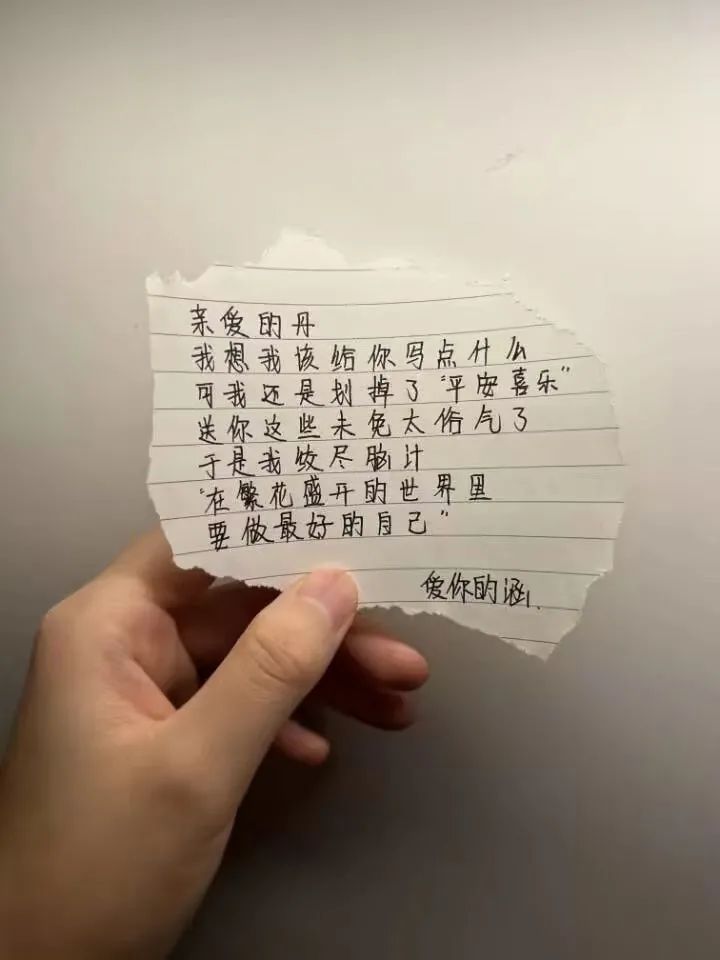 亲爱的丹
我想我该给你写点什么
可我还是划掉了“平安喜乐”
送你这些未免太俗气了
于是我绞尽脑汁
“在繁花盛开的世界里
要做最好的自己”
爱你的涵.